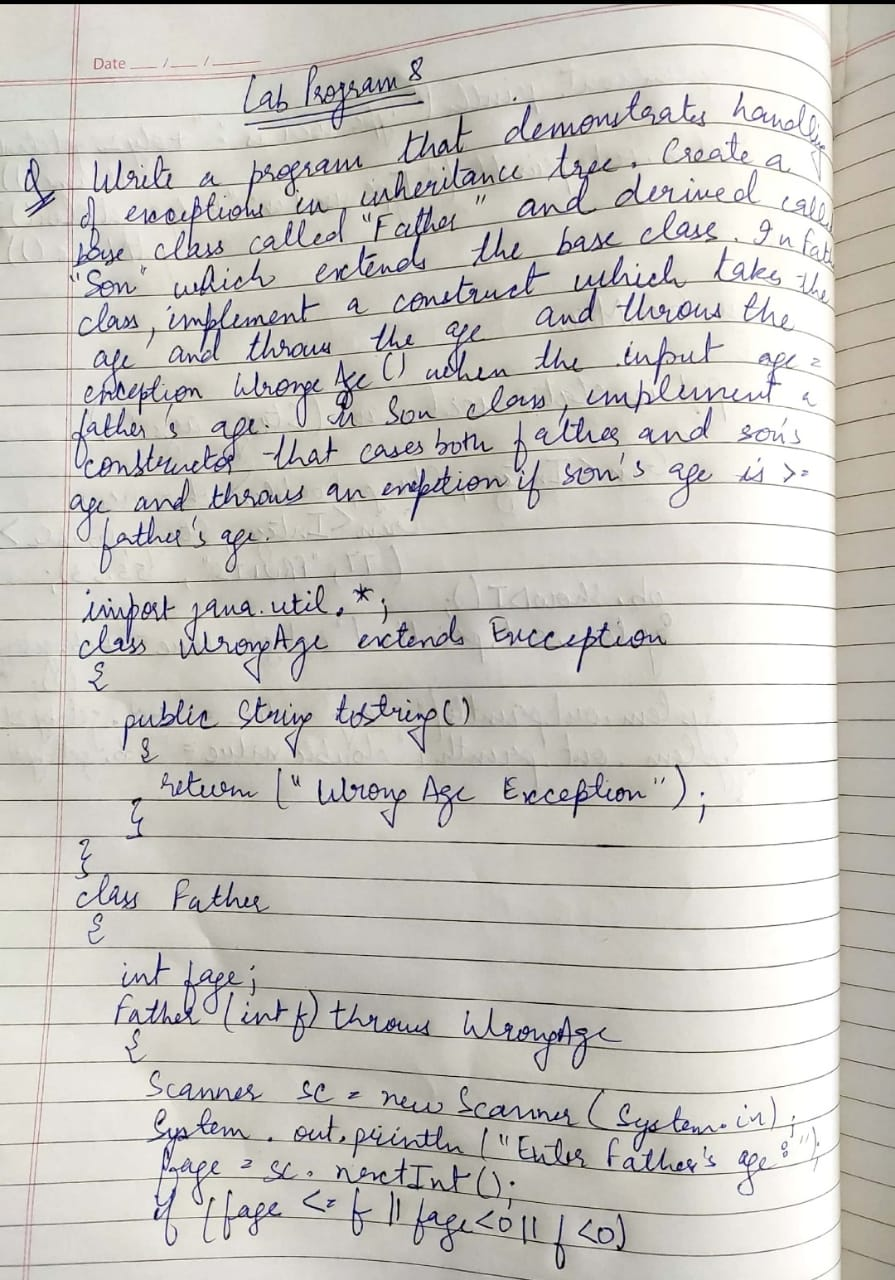 Date __/__/____
Lab Program 8
Q Write a program that demonstrates handling
of exceptions in inheritance tree. Create a
base class called "Father" and derived calle
"Son" which extends the base class. In Fath
class, implement a construct which takes the
age and throws the age and throws the
exception Wronge Age () when the input age =
father's age. In Son class, implement a
constructor that cases both father and son's
age and throws an exception if son's age is >=
father's age.
import java.util.*;
class WrongAge extends Exception
{
public String tostring()
{
return ("Wrong Age Exception");
}
}
class Father
{
int fage;
Father (int f) throws WrongAge
{
Scanner sc = new Scanner (System.in);
System.out.println ("Enter Father's age:");
fage = sc.nextInt();
if (fage <= f || fage<0 || f <0)